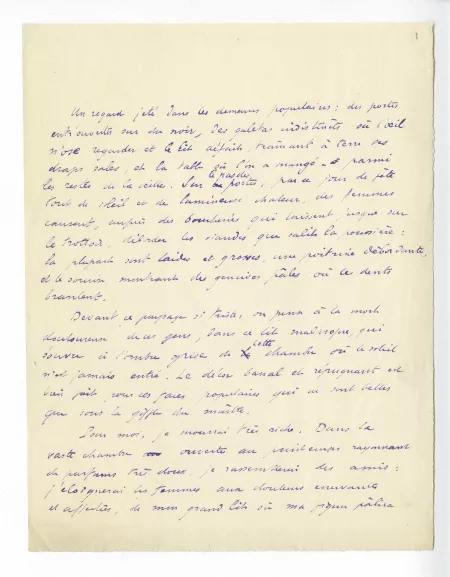 1
Un regard jeté dans les demeures populaires : des portes
entr'ouvertes sur du noir, des galetas indistincts où l'œil
n'ose regarder et le lit défait, traînant à terre ses
draps sales, et la table où l'on a mangé parmi
les restes de la veille. Sur le pas des portes, par ce jour de fête
tout de soleil et de lumineuse chaleur, des femmes
causent, auprès des boucheries qui laissent, jusque sur
le trottoir, déborder les viandes que salit la poussière :
la plupart sont laides et grosses, une poitrine débordante,
et le sourire montrant des gencives pâles où les dents
branlent.
Devant ce paysage si triste, on pense à la mort
douloureuse de ces gens, dans ce lit
à l'ombre grise de cette chambre où le soleil
n'est jamais entré. Le décor banal et répugnant est
bien fait pour ces faces populaires qui ne sont belles
que sous la du maître.
Pour moi, je mourrai très riche. Dans la
vaste chambre ouverte au printemps rayonnant
de parfums très doux, je rassemblerai des amis :
j'éloignerai les femmes aux douleurs énervantes
et affectées, de mon grand lit où ma figure pâlira